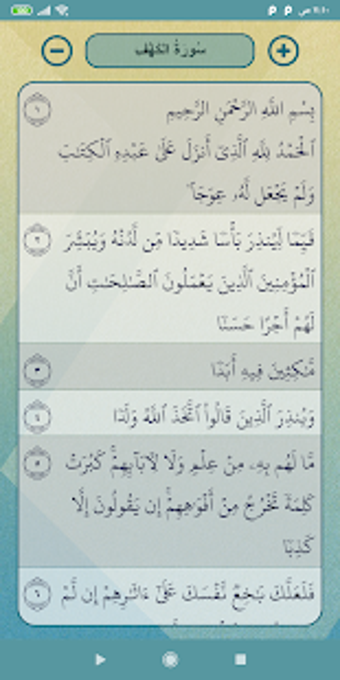 سُورَةُ الكَهْفِ
بِسْمِ اللَّهِ الرَّحْمَٰنِ الرَّحِيمِ ١
ٱلْحَمْدُ لِلَّهِ ٱلَّذِىٓ أَنزَلَ عَلَىٰ عَبْدِهِ ٱلْكِتَٰبَ
وَلَمْ يَجْعَل لَّهُۥ عِوَجَا ۜ
قَيِّمًا لِّيُنذِرَ بَأْسًا شَدِيدًا مِّن لَّدُنْهُ وَيُبَشِّرَ ٢
ٱلْمُؤْمِنِينَ ٱلَّذِينَ يَعْمَلُونَ ٱلصَّٰلِحَٰتِ أَنَّ
لَهُمْ أَجْرًا حَسَنًا
مَّٰكِثِينَ فِيهِ أَبَدًا ٣
وَيُنذِرَ ٱلَّذِينَ قَالُوا۟ ٱتَّخَذَ ٱللَّهُ وَلَدًا ٤
مَّا لَهُم بِهِۦ مِنْ عِلْمٍ وَلَا لِءَابَآئِهِمْ ۚ كَبُرَتْ ٥
كَلِمَةً تَخْرُجُ مِنْ أَفْوَٰهِهِمْ ۚ إِن يَقُولُونَ إِلَّا
كَذِبًا
فَلَعَلَّكَ بَٰخِعٌ نَّفْسَكَ عَلَىٰٓ ءَاثَٰرِهِمْ إِن لَّمْ ٦